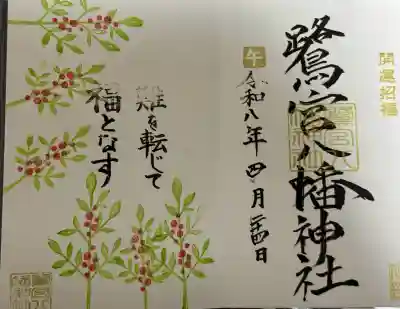 開運招福
鷺宮八幡神社
午
令和八年四月二十四日
難を転じて
福となす